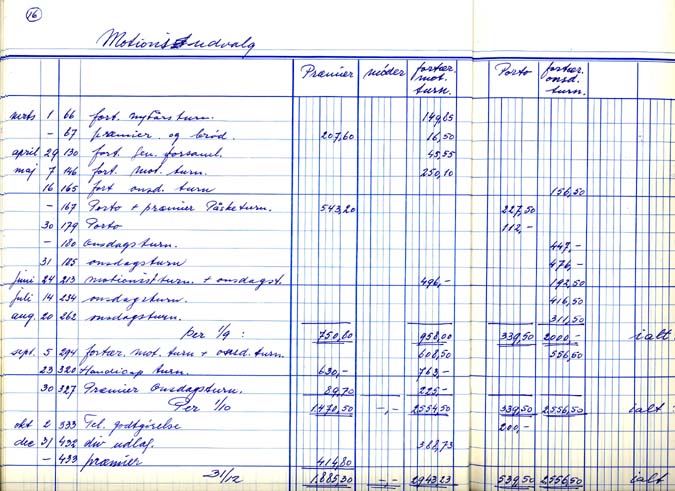 16
Motionsudvalg
Præmier møder fortær. mot. turn. Porto fortær. onsd. turn.
marts 1 66 fort. nytårsturn. 149,85
- 67 præmier og brød. 207,60 16,50
april 29 130 fort. Gen. forsaml. 45,55
maj 7 146 fort. mot. turn. 250,10
16 165 fort onsd. turn 156,50
- 167 Porto + præmier Påsketurn. 543,20 227,50
30 179 Porto 112,-
- 180 Onsdagsturn. 447,-
31 185 onsdagsturn 476,-
juni 24 213 motionistturn. + onsdagst. 496,- 192,50
juli 14 234 onsdagsturn. 416,50
aug. 20 262 onsdagsturn. 311,50
Per 1/9 : 750,80 958,00 339,50 2000,- ialt:
sept. 5 294 fortær. mot. turn + onsd. turn. 608,50 556,50
23 320 Handicap turn. 630,- 763,-
30 327 Præmier Onsdagsturn. 89,70 225,-
Per 1/10 1.470,50 -,- 2554,50 339,50 2.556,50 ialt:
okt 2 333 Tel. godtgörelse 200,-
dec 31 432 div udlæg. 388,73
- 433 præmier 414,80
31/12 1.885,30 -,- 2943,23 539,50 2556,50 ialt